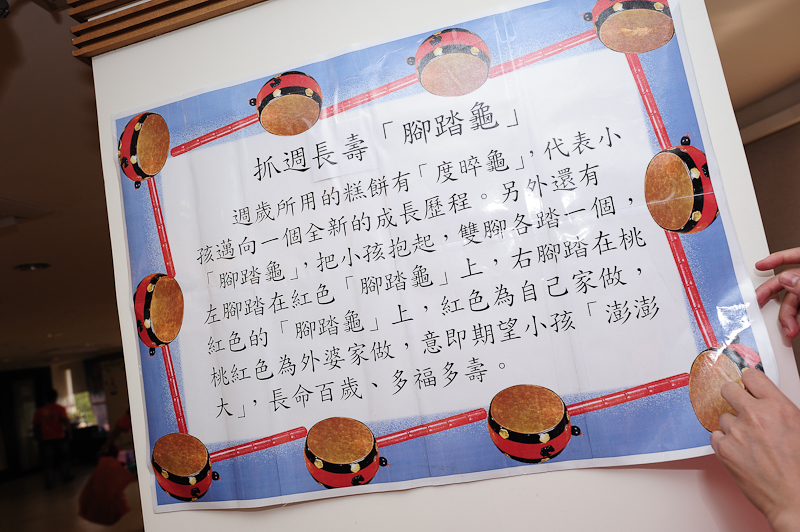 抓週長壽「腳踏龜」
週歲所用的糕餅有「度晬龜」，代表小
孩邁向一個全新的成長歷程。另外還有
「腳踏龜」，把小孩抱起，雙腳各踏一個，
左腳踏在紅色「腳踏龜」上，右腳踏在桃
紅色的「腳踏龜」上，紅色為自己家做，
桃紅色為外婆家做，意即期望小孩「澎澎
大」，長命百歲、多福多壽。